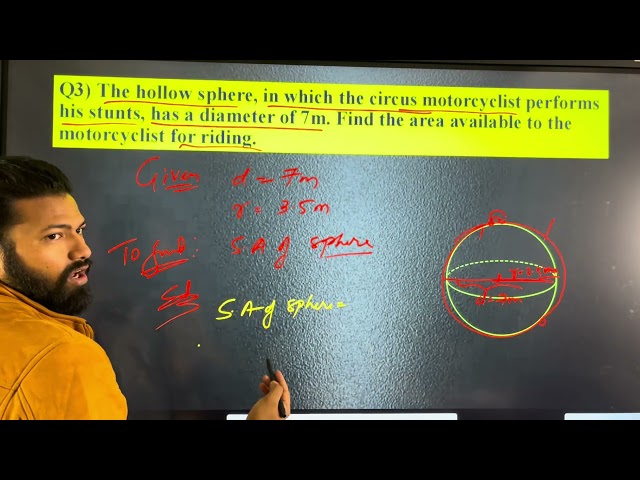 Q3) The hollow sphere, in which the circus motorcyclist performs
his stunts, has a diameter of 7m. Find the area available to the
motorcyclist for riding.
Given d = 7m
r = 3.5m
To find: S A of sphere
Sol
S A of sphere =
r = 3.5m
d = 7m